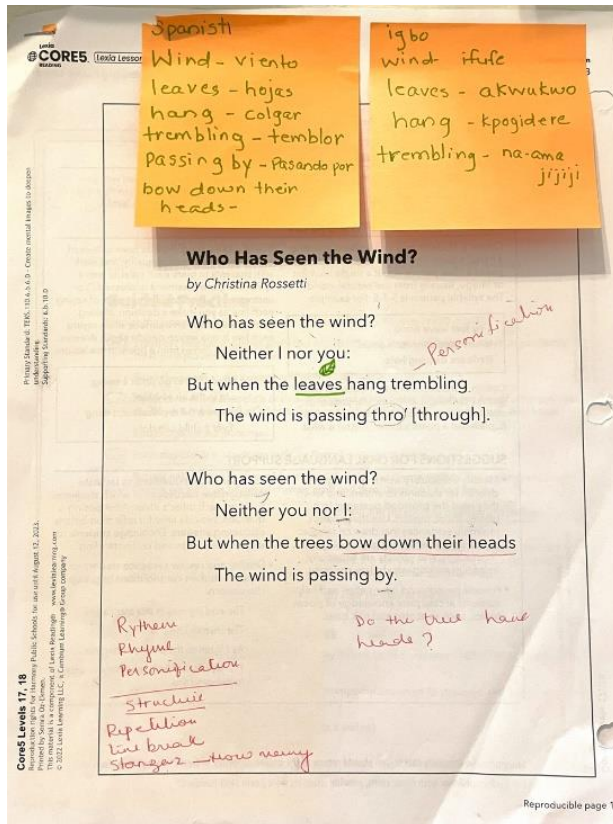 Lexia
CORE5
READING
Lexia Lesson
Spanish
Wind - viento
leaves - hojas
hang - colgar
trembling - temblor
Passing by - Pasando por
bow down their
heads -
igbo
wind ifufe
leaves - akwukwo
hang - kpogidere
trembling - na-ama
jijiji
Who Has Seen the Wind?
by Christina Rossetti
Who has seen the wind?
Neither I nor you:
But when the leaves hang trembling
The wind is passing thro' [through].
- Personification
Who has seen the wind?
Neither you nor I:
But when the trees bow down their heads
The wind is passing by.
Rythem
Rhyme
Personification
Structure
Repetition
Line break
Stangaz - How many
Do the tree have
heads?
Primary Standard: TEKS 110.6.b.6.D - Create mental images to deepen
understanding.
Supporting Standards: 6.b.10.D
Core5 Levels 17, 18
Reproduction rights for Harmony Public Schools for use until August 12, 2023.
This material is a component of Lexia Reading® www.lexialearning.com
© 2022 Lexia Learning LLC, a Cambium Learning® Group company
Reproducible page 1